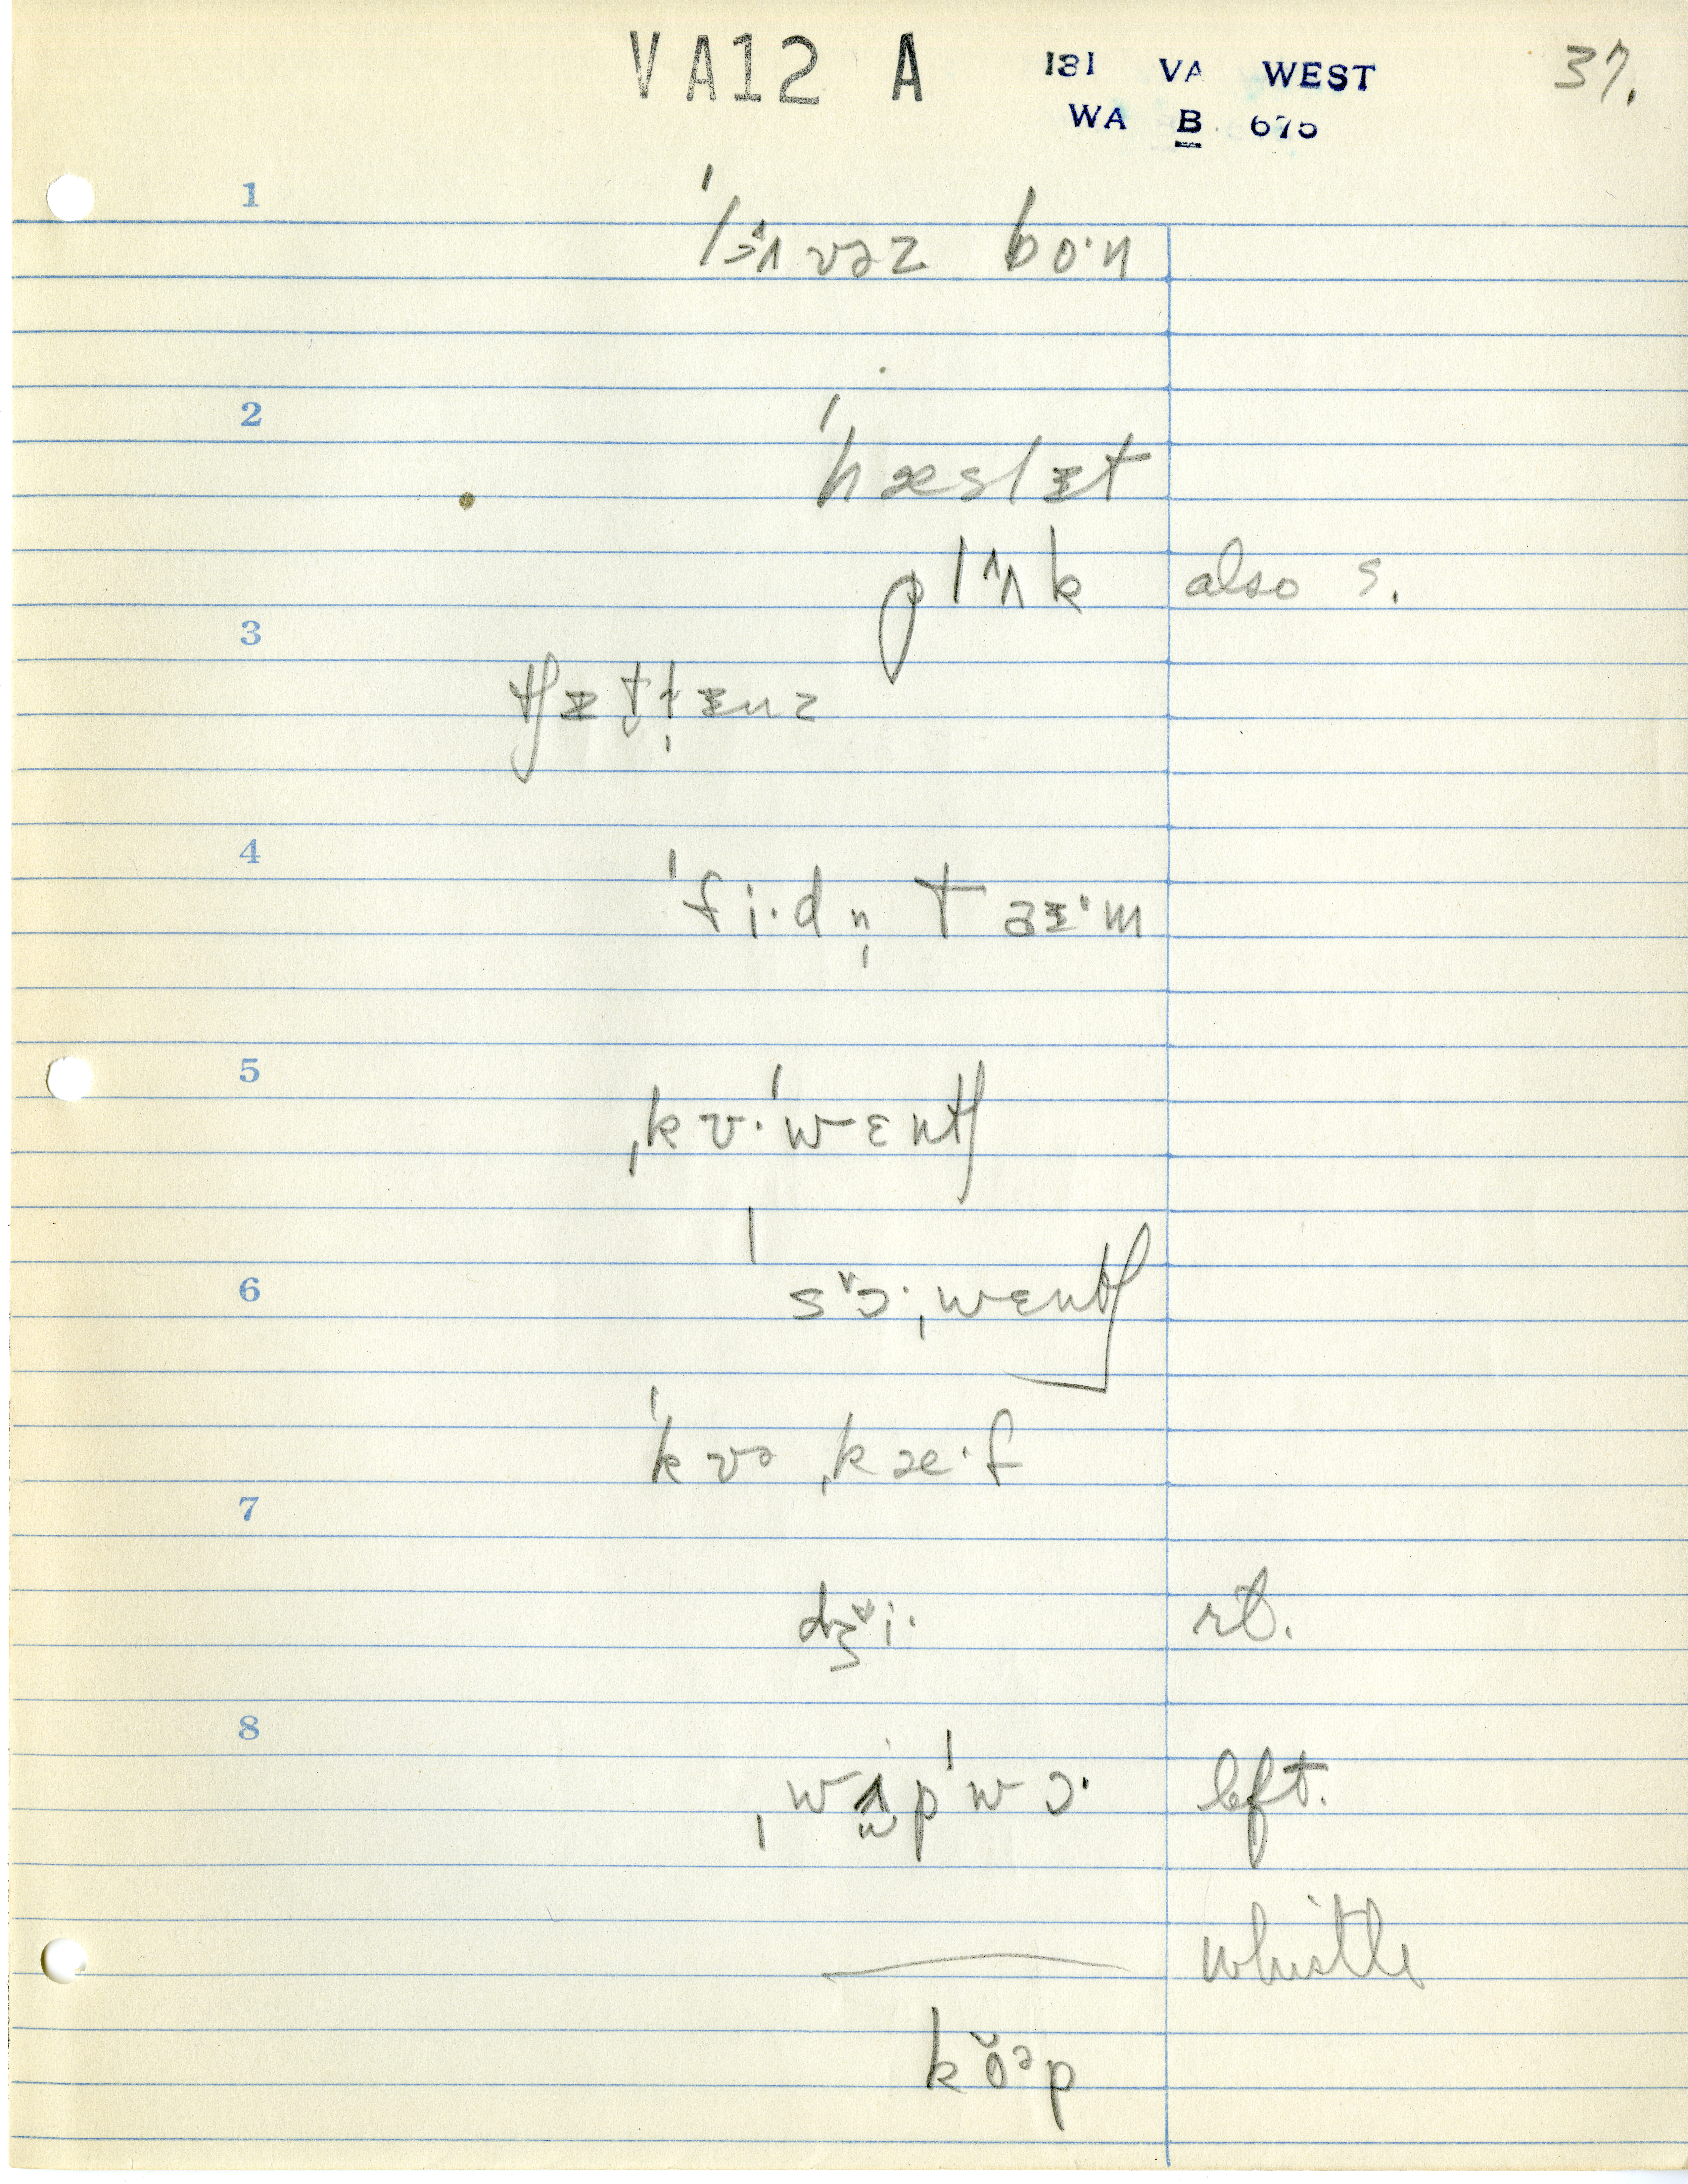 VA12 A
181 VA WEST
WA B 675
37.
1
ˈlɜ^ʌvəz bo·n
2
ˈhæslᵻt
plʌ^k
also s.
3
tʃᵻt̬l̩ᵻnz
4
ˈfi·dn̩ taᵻ·m
5
ˌkʊ·ˈwɛntʃ
6
ˈsɔ˅·ˌwɛntʃ
ˈkʊəˌkæ·f
7
dʒi˅·
rt.
8
ˌwʌpˈwɔ·
left.
whistle
kŏəp